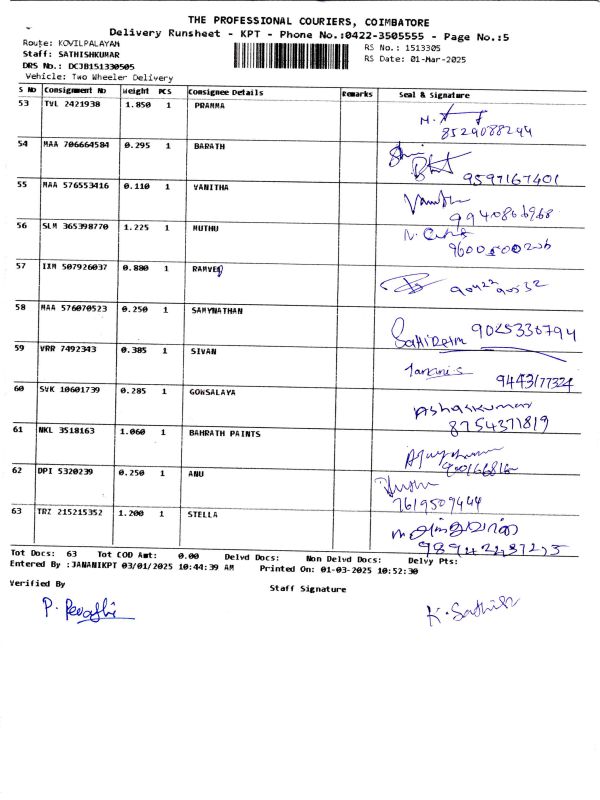 THE PROFESSIONAL COURIERS, COIMBATORE
Delivery Runsheet - KPT - Phone No.:0422-3505555 - Page No.:5
Route: KOVILPALAYAM
RS No.: 1513305
Staff: SATHISHKUMAR
RS Date: 01-Mar-2025
DRS No.: DCJB151330505
Vehicle: Two Wheeler Delivery
S No Consignment No Weight PCS Consignee Details Remarks Seal & Signature
53 TVL 2421938 1.850 1 PRAMMA
8529088244
54 MAA 706664584 0.295 1 BARATH
9597167401
55 MAA 576553416 0.110 1 VANITHA
9940866968
56 SLM 365398770 1.225 1 MUTHU
57 IXM 507926037 0.880 1 RAMVEL
58 MAA 576070523 0.250 1 SAMYNATHAN
9025330794
59 VRR 7492343 0.385 1 SIVAN
Janani S
9443177324
60 SVK 10601739 0.285 1 GOWSALAYA
Ashaskumar
8754371819
61 NKL 3518163 1.060 1 BAHRATH PAINTS
62 DPI 5320239 0.250 1 ANU
7619509444
63 TRZ 215215352 1.200 1 STELLA
Tot Docs: 63 Tot COD Amt: 0.00 Delvd Docs: Non Delvd Docs: Delvy Pts:
Entered By :JANANIKPT 03/01/2025 10:44:39 AM Printed On: 01-03-2025 10:52:30
Verified By
Staff Signature
K. Sathish